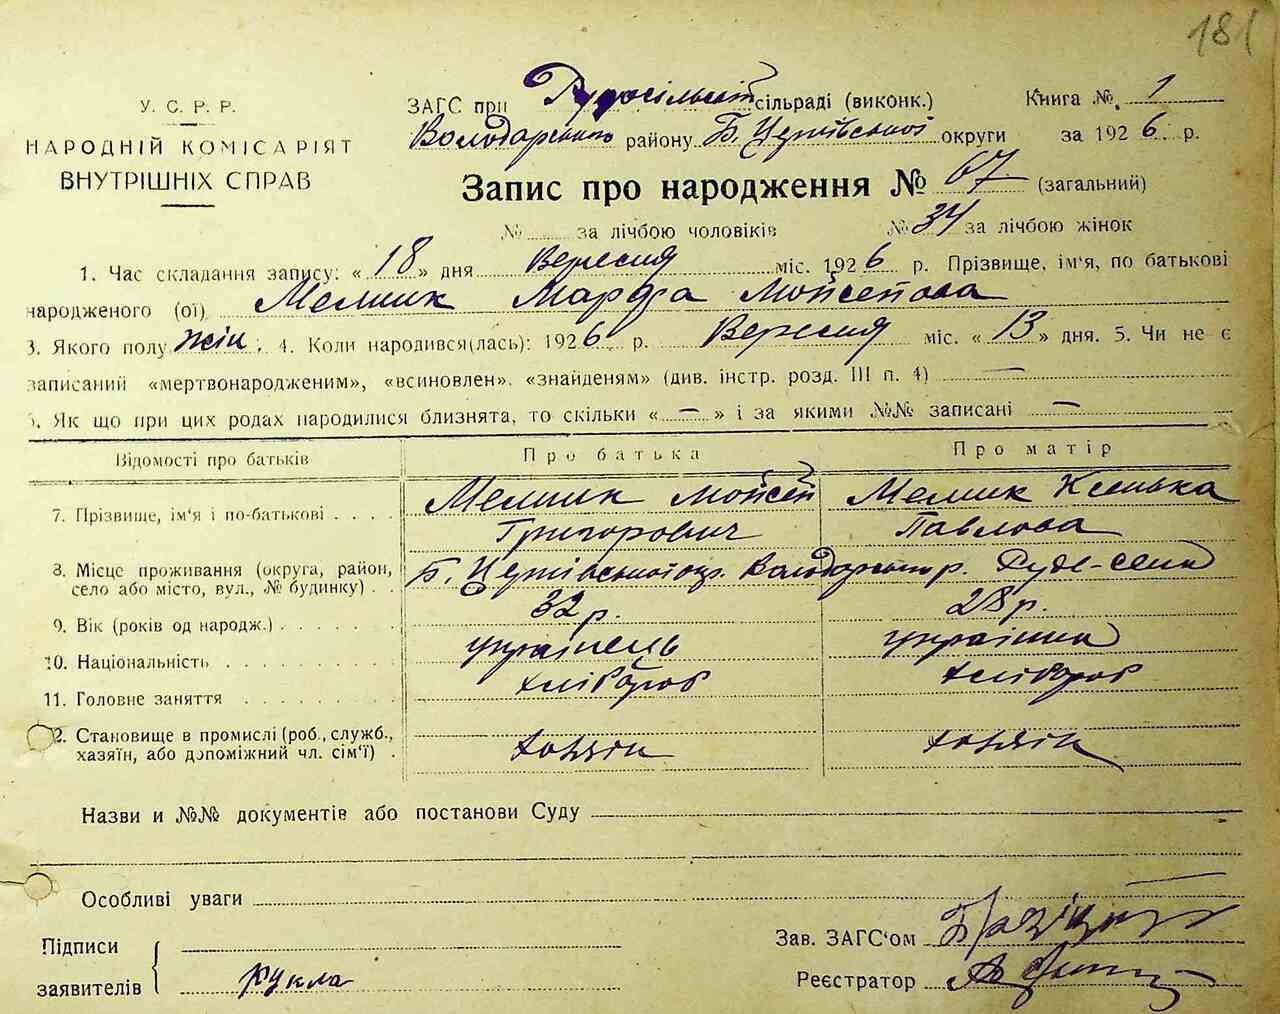 181
У. С. Р. Р.
НАРОДНІЙ КОМІСАРІЯТ
ВНУТРІШНІХ СПРАВ
ЗАГС при Рудосільській сільраді (виконк.) Книга №. 1
Володарського району Б. Церківської округи за 1926 р.
Запис про народження № 67 (загальний)
№ за лічбою чоловіків № 34 за лічбою жінок
1. Час складання запису: « 18 » дня Вересня міс. 1926 р. Прізвище, ім'я, по батькові
народженого (ої) Мельник Марфа Мойсеїова
3. Якого полу жін. 4. Коли народився(лась): 1926 р. Вересня міс. « 13 » дня. 5. Чи не є
записаний «мертвонародженим», «всиновлен», «знайденям» (див. інстр. розд. III п. 4) —
6. Як що при цих родах народилися близнята, то скільки « — » і за якими №№ записані —
Відомості про батьків Про батька Про матір
7. Прізвище, ім'я і по-батькові Мельник Мойсей Мельник Ксенька
Григорович Павлова
8. Місце проживання (округа, район, село або місто, вул., № будинку) Б. Церківської окр. Володарського р. Руде-село
9. Вік (років од народж.) 32 р. 28 р.
10. Національність українець українка
11. Головне заняття хлібороб хлібороб
12. Становище в промислі (роб., служб., хазяїн, або допоміжний чл. сім'ї) хазяїн хазяїн
Назви и №№ документів або постанови Суду
Особливі уваги
Підписи
заявителів Кукла
Зав. ЗАГС'ом
Реєстратор